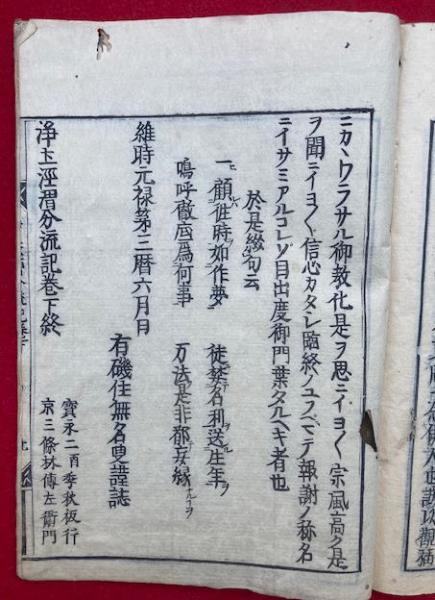 ニカヽワラサル御教化是ヲ思ニイヨ〱宗風高ク是
ヲ聞ニイヨ〱信心カタシ臨終ノユフベマテ報謝ノ称名
ニイサミアルコレゾ目出度御門葉タルヘキ者也
於是綴句云
一顧徃時如作夢 徒楚名利送生年
嗚呼徹底為何事 万法是非都妄縁
維時元禄第三暦六月日
有磯住無名叟謹誌
浄土涇渭分流記巻下終
寳永二酉季秋板行
京三條 傳左衛門